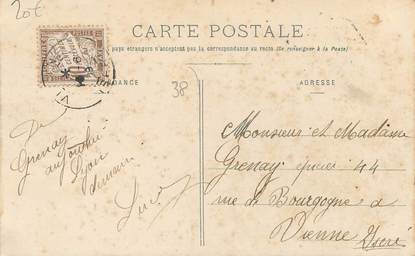 20€
CARTE POSTALE
pays étrangers n'acceptent pas la correspondance au recto (Se renseigner à la Poste)
DANCE
ADRESSE
38
De
Grenay
aujourd'hui
Lyon
demain
Monsieur et Madame
Grenay 44
rue de Bourgogne à
Vienne Isère